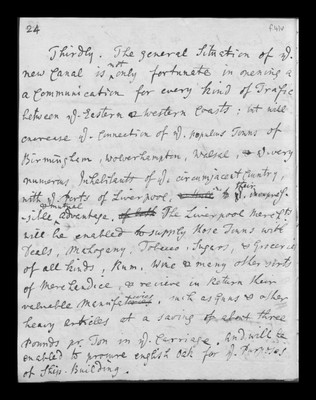 24
Thirdly. The general Situation of yͤ.
new Canal is not only fortunate in opening a
a Communication for every kind of Trafic
between yͤ. Eastern & western Coasts: but will
encrease yͤ. Connection of yͤ. populous Towns of
Birmingham, wolverhampton, Walsal, & yͤ. very
numerous Inhabitants of yͤ. circumjacent Country,
with yͤ. Ports of Liverpool, to their
& mutual
advantage, of both The Liverpool Merchts
will be enabled to supply those Towns with
Deals, Mahogany, Tobacco, Sugars, & Groceries
of all kinds, Rum, Wine & many other sorts
of Merchandice, & recieve in Return their
valuable Manufactures, such as Guns & other
heavy articles at a saving of about three
Pounds pr. Ton in yͤ. Carriage. And will be
enabled to procure english Oak for yͤ. Purposes
of Ship-Building.